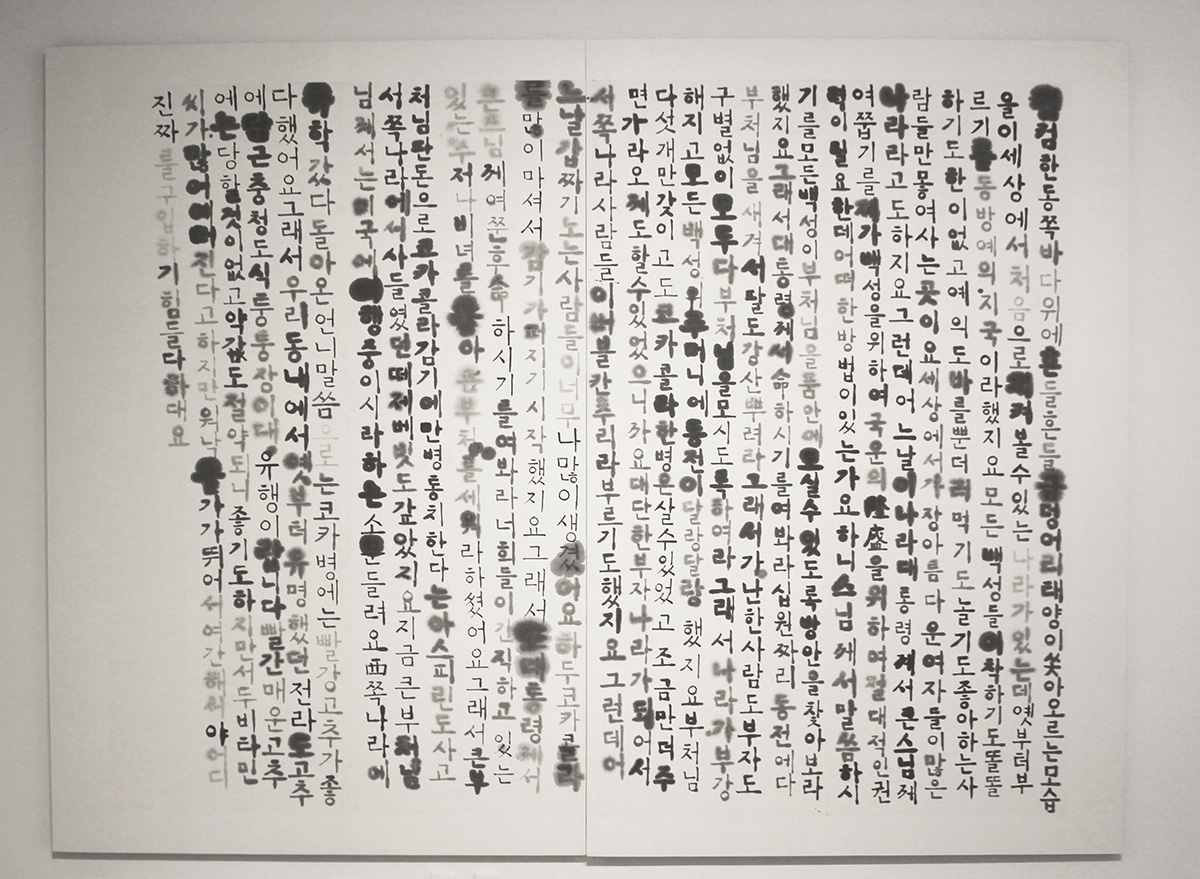 컴한동쪽바다위에흔들흔들금덩어리태양이쏫아오르는모습
을이세상에서처음으로제겨볼수있는나라가있는데옛부터부
르기를동방예의지국이라했지요모든백성들이착하기도똘똘
하기도한이없고예의도바를뿐더러먹기도놀기도좋아하는사
람들만몽여사는곳이요세상에서가장아름다운여자들이많은
나라라고도하지요그런데어느날이나라대통령께서큰스님께
여쭙기를제가백성을위하여국운의隆盛을위하여절대적인권
력이필요한데어떠한방법이있는가요하니스님께서말씀하시
기를모든백성이부처님을품안에모실수있도록방안을찾아보라
했지요그래서대통령께서命하시기를여봐라십원짜리동전에다
부처님을새겨서팔도강산뿌려라그래서가난한사람도부자도
구별없이모두다부처님을모시도록하여라그래서나라가부강
해지고모든백성위주머니에동전이달랑달랑했지요부처님
다섯개만갖이고도코카콜라한병은살수있었고조금만더주
면가라오케도할수있었으니까요대단한부자나라가되어서
서쪽나라사람들이버블칸추리라부르기도했지요그런데어
느날갑짜기노는사람들이너무나많이생겼어요하두코카콜라
를많이마셔서감기가퍼지기시작했지요그래서또대통령께서
큰스님께여쭌후命하시기를여봐라너희들이간직하고있는
있는주저나비녀를팔아큰부처를세워라하셨어요그래서큰부
처님판돈으로코카콜라감기에만병통치한다는아스피린도사고
서쪽나라에세사들였던떼제베빗도갚았지요지금큰부처님
님께서는미국에여행중이시라하는소문들려요西쪽나라에
유학갔다돌아온언니말씀으로는코카병에는빨강고추가좋
다했어요그래서우리동내에서옛부터유명했던전라도고추
에담근충청도식퉁퉁장이대유행이랍니다빨간매운고추
에는당할것이없고약값도절약도니좋기도하지만서두비타민
씨가많어진다고하지만워낙물가가뛰어서여간해서야어디
진짜를구입하기힘들다하대요